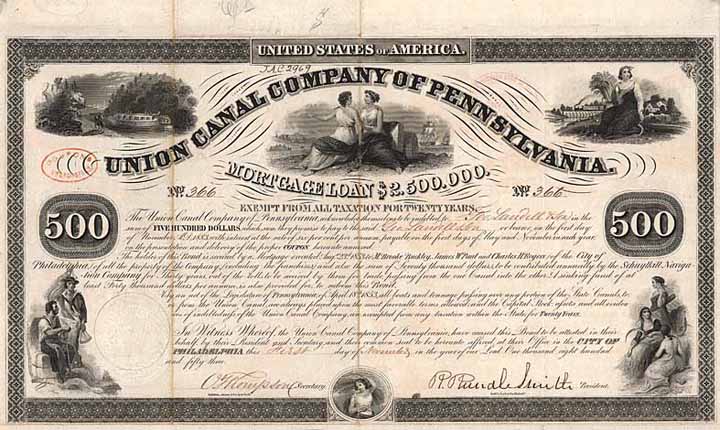 UNITED STATES OF AMERICA.
JAC 2969
UNION CANAL COMPANY OF PENNSYLVANIA.
MORTGAGE LOAN $2,500,000.
No. 366 No. 366
EXEMPT FROM ALL TAXATION FOR TWENTY YEARS.
500 500
The Union Canal Company of Pennsylvania, acknowledge to be indebted to in the
sum of FIVE HUNDRED DOLLARS, which sum they promise to pay to the said or bearer, on the first day
of November, A.D. 1883, with interest at the rate of six per cent per annum, payable on the first days of May and November in each year,
on the presentation of the proper COUPON hereunto annexed.
The holder of this Bond is secured by a Mortgage executed May 23rd 1853 to M. Brooke Buckley, James W. Paul and Charles H. Rogers of the City of
Philadelphia, of all the property of the Company, including the franchises; and also the sum of Seventy thousand dollars, to be contributed annually by the Schuylkill Naviga-
tion Company for of the tolls to be received by them on trade passing from the one Canal into the other. A sinking fund, of at
least Forty thousand dollars per annum, is also provided for, to redeem this Bond.
By an act of the Legislature of Pennsylvania, of April 18th 1853, all boats and tonnage passing over any portion of the State Canals, to
or from the Union Canal, are always placed upon the most favorable terms allowed, and the Capital Stock, effects and all eviden-
ces of indebtedness of the Union Canal Company, are exempted from any taxation within the State for Twenty Years.
In Witness Whereof, the Union Canal Company of Pennsylvania, have caused this Bond to be attested in their
behalf by their President and Secretary, and their common seal to be hereunto affixed at their Office in the CITY OF
PHILADELPHIA this First day of November in the year of our Lord One thousand eight hundred
and fifty three.
O. Thompson Secretary. R. Rundle Smith President.